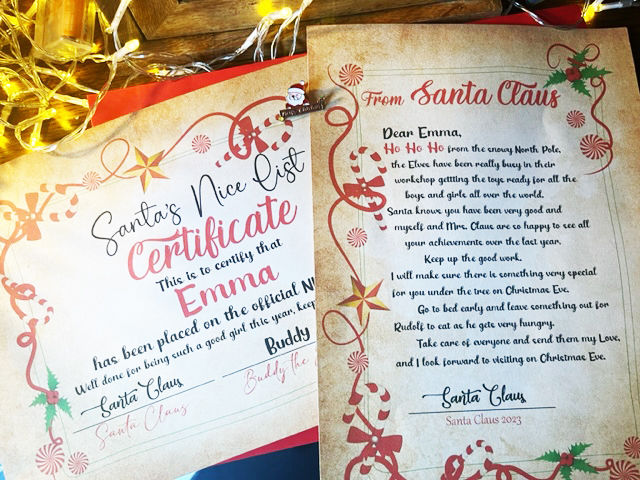 Santa's Nice List
Certificate
This is to certify that
Emma
has been placed on the official
Well done for being such a good girl this year, keep
Santa Claus
Buddy
Santa Claus
Buddy the
From Santa Claus
Dear Emma,
Ho Ho Ho from the snowy North Pole,
the Elves have been really busy in their
workshop getting the toys ready for all the
boys and girls all over the world.
Santa knows you have been very good and
myself and Mrs. Claus are so happy to see all
your achievements over the last year.
Keep up the good work.
I will make sure there is something very special
for you under the tree on Christmas Eve.
Go to bed early and leave something out for
Rudolf to eat as he gets very hungry.
Take care of everyone and send them my Love,
and I look forward to visiting on Christmas Eve.
Santa Claus
Santa Claus 2023